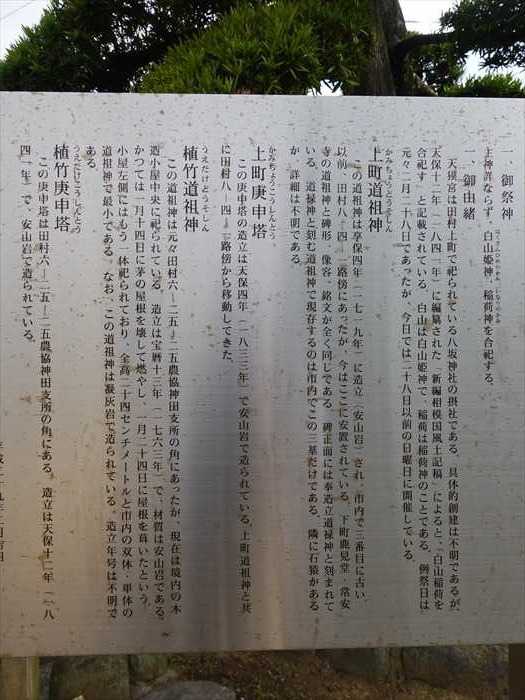 一、御祭神
主神詳ならず、白山姫神、稲荷神を合祀する。
一、御由緒
天獏宮は田村上町で祀られている八坂神社の摂社である。具体的創建は不明であるが、
天保十二年（一八四一年）に編纂された「新編相模国風土記稿」によると、「白山稲荷を
合祀す」と記載されている。白山は白山姫神で、稲荷は稲荷神のことである。例祭日は
元々二月二十八日であったが、今日では二十八日以前の日曜日に開催している。
かみちょうどうそしん
上町道祖神
この道祖神は享保四年（一七一九年）に造立（安山岩）され、市内で三番目に古い。
以前、田村八ー四ー 路傍にあったが、今はここに安置されている。下町鹿見堂・常安
寺の道祖神と碑形、像容、銘文が全く同じである。碑正面には奉造立道禄神と刻まれて
いる。道禄神と刻む道祖神で現存するのは市内でこの三基だけである。隣に石猿がある
が、詳細は不明である。
かみちょうこうしんとう
上町庚申塔
この庚申塔の造立は天保四年（一八三三年）で安山岩で造られている。上町道祖神と共
に田村八ー四ー 路傍から移動してきた。
うえだけどうそしん
植竹道祖神
この道祖神は元々田村六ー二五ー二五農協神田支所の角にあったが、現在は境内の木
造小屋中央に祀られている。造立は宝暦十三年（一七六三年）で、材質は安山岩である。
かつては一月十四日に茅の屋根を壊して燃やし、一月二十四日に屋根を葺いたという。
小屋左側にはもう一体祀られており、全高二十四センチメートルと市内の双体・単体の
道祖神で最小である。なお、この道祖神は凝灰岩で造られている。造立年号は不明で
ある。
うえだけこうしんとう
植竹庚申塔
この庚申塔は田村六ー二五ー二五農協神田支所の角にある。造立は天保十二年（一八
四一年）で、安山岩で造られている。